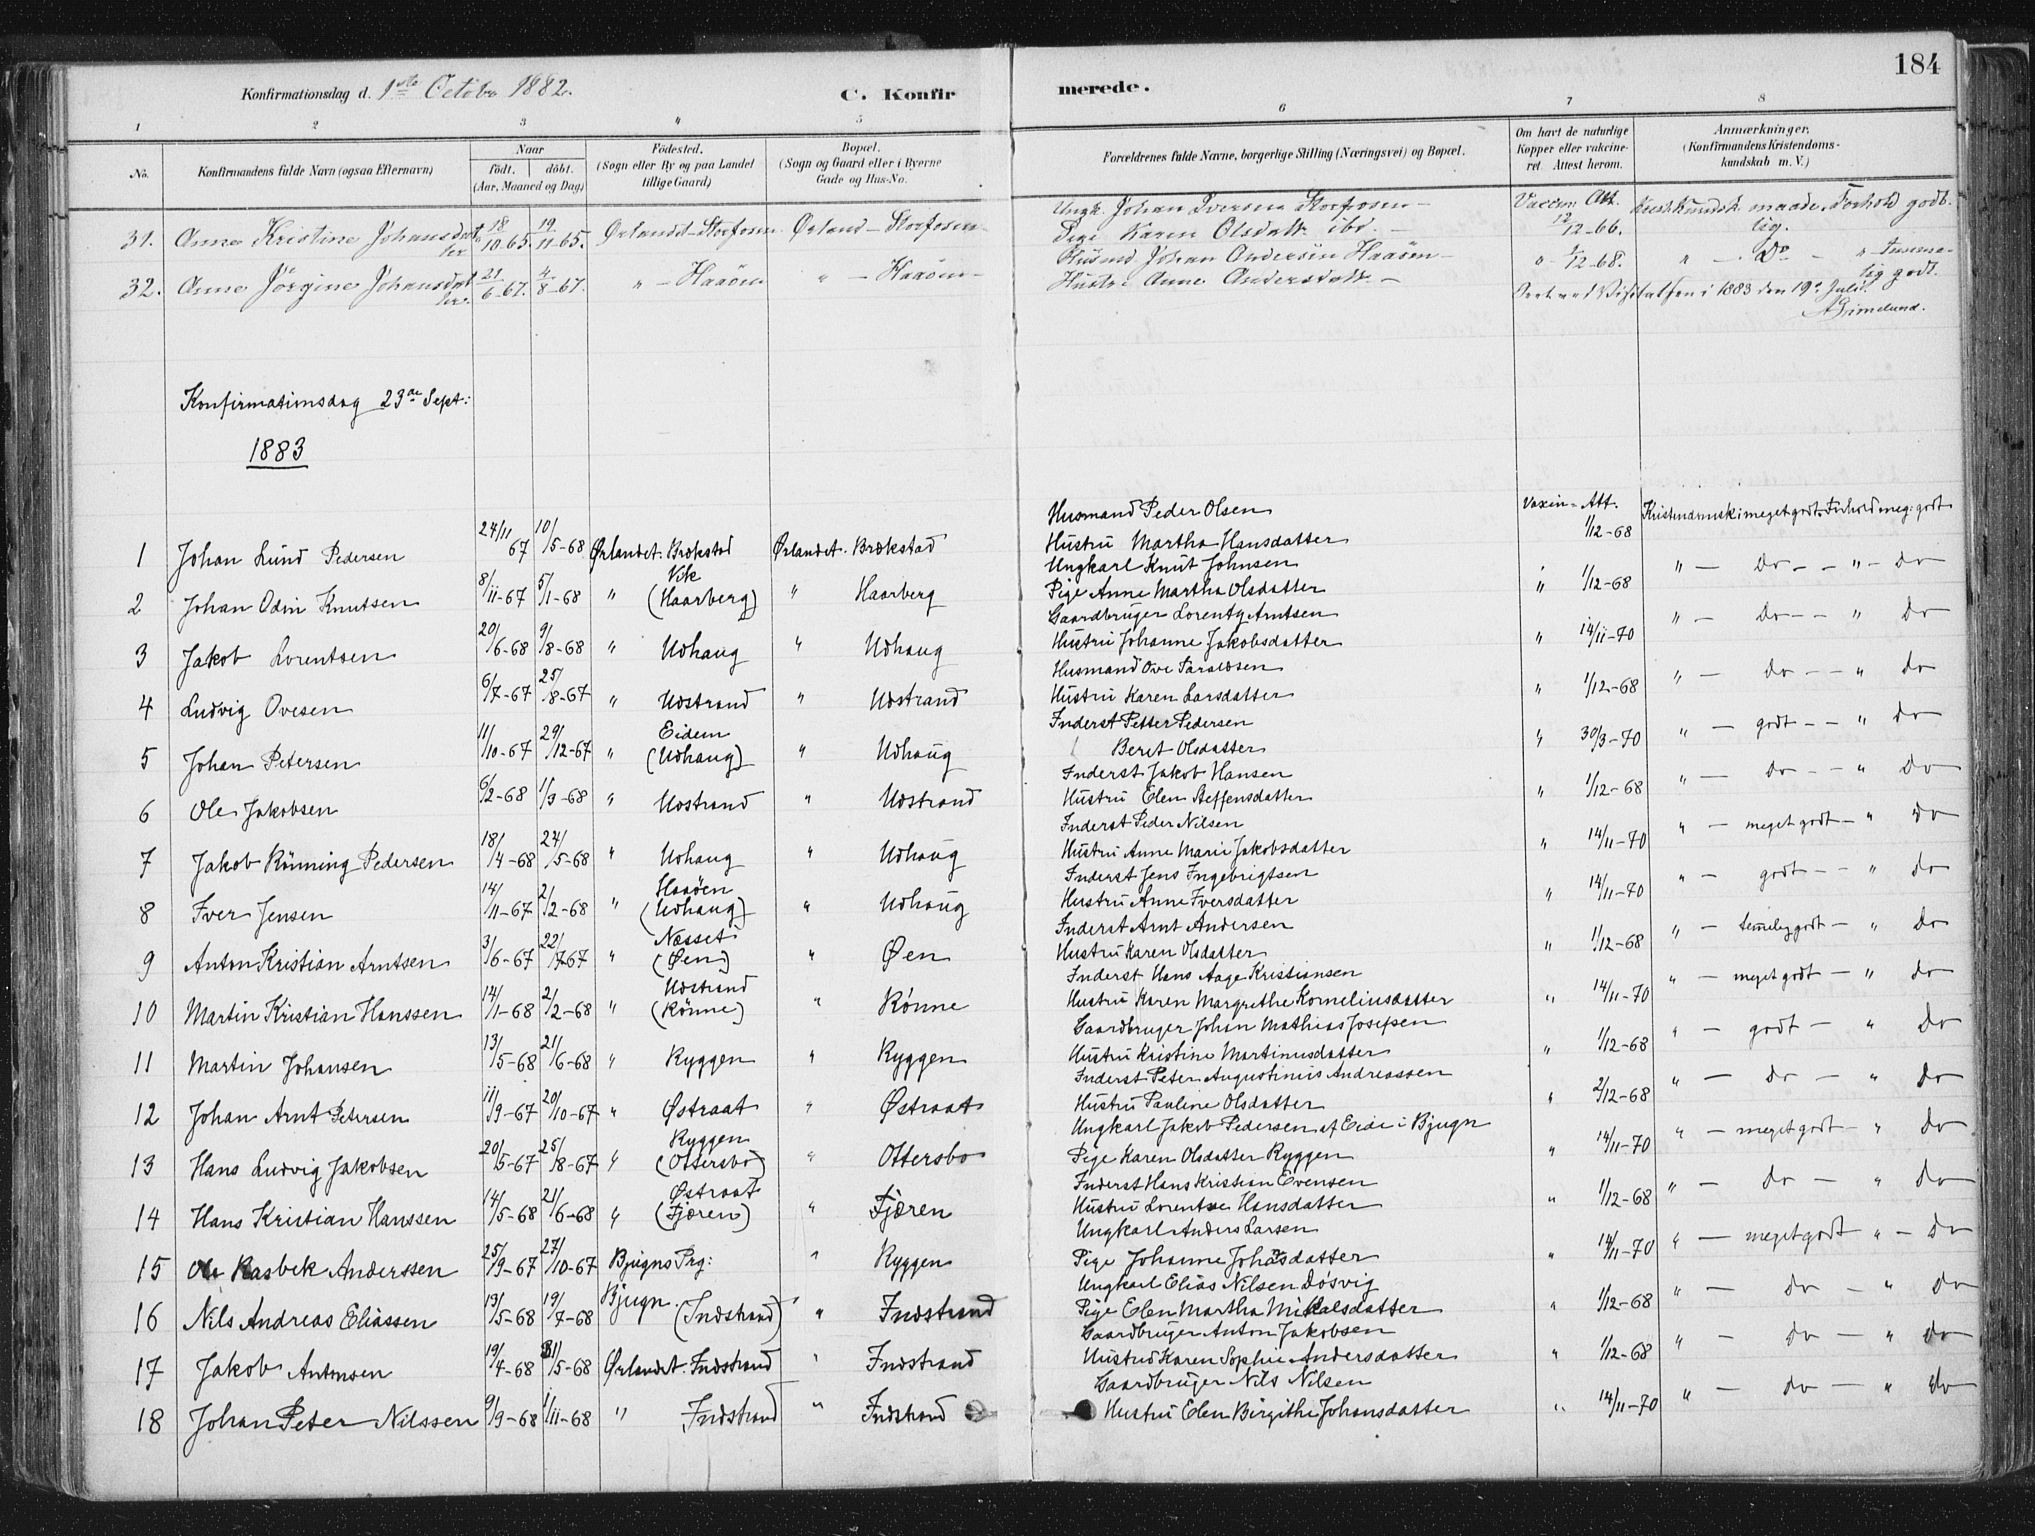 184
Konfirmationsdag d. 1ste Octobr 1882. C. Konfir merede.
1 2 3 4 5 6 7 8
No. Konfirmandens fulde Navn (ogsaa Efternavn) Naar födt. döbt. (Aar, Maaned og Dag) Födested. (Sogn eller By og paa Landet tillige Gaard) Bopæl. (Sogn og Gaard eller i Byerne Gade og Hus-No. Forældrenes fulde Navne, borgerlige Stilling (Næringsvei) og Bopæl. Om havt de naturlige Kopper eller vakcineret. Attest herom. Anmærkninger. (Konfirmandens Kristendomskundskab m. V.)
31. Anne Kristine Johansdatter 18/10-65. 19/11-65. Ørlandet - Storfosen Ørland - Storfosen Ungk. Johan Iversen Storfosen - Pige Karen Olsdatt. ibd. - Vaccin. Att. 12/12-66. Kristkundsk. maadelig. Forhold godt.
32. Anne Jörgine Johansdatter 21/6-67. 4/8-67. " - Haaöen " - Haaöen - Husmd Johan Andersen Haaöen - Hustr. Anne Andersdatt. - " 1/12-68. " - Do - " temmelig godt.
Seet ved Visitatsen i 1883 den 19de Juli. A Grimelund.
Konfirmationsdag 23de Sept:
1883
1 Johan Lund Pedersen 24/11 67 10/5-68 Ørlandet. Brekstad Ørlandet. Brekstad Husmand Peder Olsen Hustru Martha Hansdatter Vaxin-Att. 1/12-68 Kristendomsk: meget godt. Forhold meg: godt
2 Johan Odin Knutsen 8/11-67 5/1-68 " Vik (Haarberg) " Haarberg Ungkarl Knut Johnsen Pige Anne Martha Olsdatter " 1/12-68 " - Do - - " - Do
3 Jakob Lorentsen 20/6-68 9/8-68 " Udhaug " Udhaug Gaardbruger Lorentz Arntsen Hustru Johanne Jakobsdatter " 14/11-70 " - Do - - " Do
4 Ludvig Ovesen 6/7-67 25/8-67 " Udstrand " Udstrand Husmand Ove Saraldsen Hustru Karen Larsdatter " 1/12-68 " - Do - - " Do
5 Johan Petersen 11/10-67 29/12-67 " Eidem (Udhaug) " Udhaug Inderst Petter Pedersen Beret Olsdatter " 30/3-70 " - godt - - " Do
6 Ole Jakobsen 6/2-68 1/3-68 " Udstrand " Udstrand Inderst Jakob Hansen Hustru Elen Steffensdatter " 1/12-68 " - Do - - " Do
7 Jakob Rönning Pedersen 18/4-68 24/5-68 " Udhaug " Udhaug Inderst Peder Nilsen Hustru Anne Marie Jakobsdatter " 14/11-70 " - meget godt - " Do
8 Iver Jensen 14/11-67 2/2-68 " Haaöen (Udhaug) " Udhaug Inderst Jens Ingebrigtsen Hustru Anne Iversdatter " 14/11-70 " - godt - - " Do
9 Anton Kristian Arntsen 3/6-67 22/7-67 " Næsset (Øen) " Øen Inderst Arnt Andersen Hustru Karen Olsdatter " 1/12-68 " - temelig godt - " Do
10 Martin Kristian Hanssen 14/1-68 2/2-68 " Udstrand (Rönne) " Rönne Inderst Hans Aage Kristiansen Hustru Karen Margrethe Korneliusdatter " 14/11-70 " - meget godt - " Do
11 Martin Johansen 13/5-68 21/6-68 " Ryggen " Ryggen Gaardbruger Johan Mathias Josefsen Hustru Kristine Martinusdatter " 1/12-68 " - godt - " Do
12 Johan Arnt Petersen 11/9-67 20/10-67 " Østraat " Østraat Inderst Peter Augustinius Andreassen Hustru Pauline Olsdatter " 2/12-68 " - Do - " Do
13 Hans Ludvig Jakobsen 20/5-67 25/8-67 " Ryggen (Ottersbo) " Ottersbo Ungkarl Jakob Pedersen af Eide i Bjugn Pige Karen Olsdatter Ryggen " 14/11-70 " - meget godt - " Do
14 Hans Kristian Hanssen 14/5-68 21/6-68 " Østraat (Fjæren) " Fjæren Inderst Hans Kristian Evensen Hustru Lorentse Hansdatter " 1/12-68 " - Do - " Do
15 Ole Rasbek Anderssen 25/9-67 27/10-67 Bjugns Prg: " Ryggen Ungkarl Anders Larsen Pige Johanne Johasdatter " 14/11-70 " - meget godt " - Do
16 Nils Andreas Eliassen 13/5-68 19/7-68 Bjugn. (Indstrand) " Indstrand Ungkarl Elias Nilsen Dösvig Pige Elen Martha Mikalsdatter " 1/12-68 " - Do - " Do
17 Jakob Antonsen 19/4-68 31/5-68 Ørlandet. Indstrand " Indstrand Gaardbruger Anton Jakobsen Hustru Karen Sophie Andersdatter " 1/12-68 " - Do - " Do
18 Johan Peter Nilssen 9/9-68 1/11-68 " Indstrand " Indstrand Gaardbruger Nils Nilsen Hustru Elen Birgithe Johansdatter " 14/11-70 " - do - " do